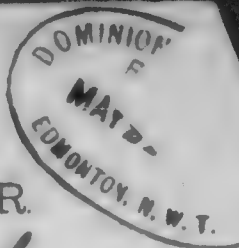 DOMINION
F
MAY 2-
EDMONTON, N. W. T.
R.